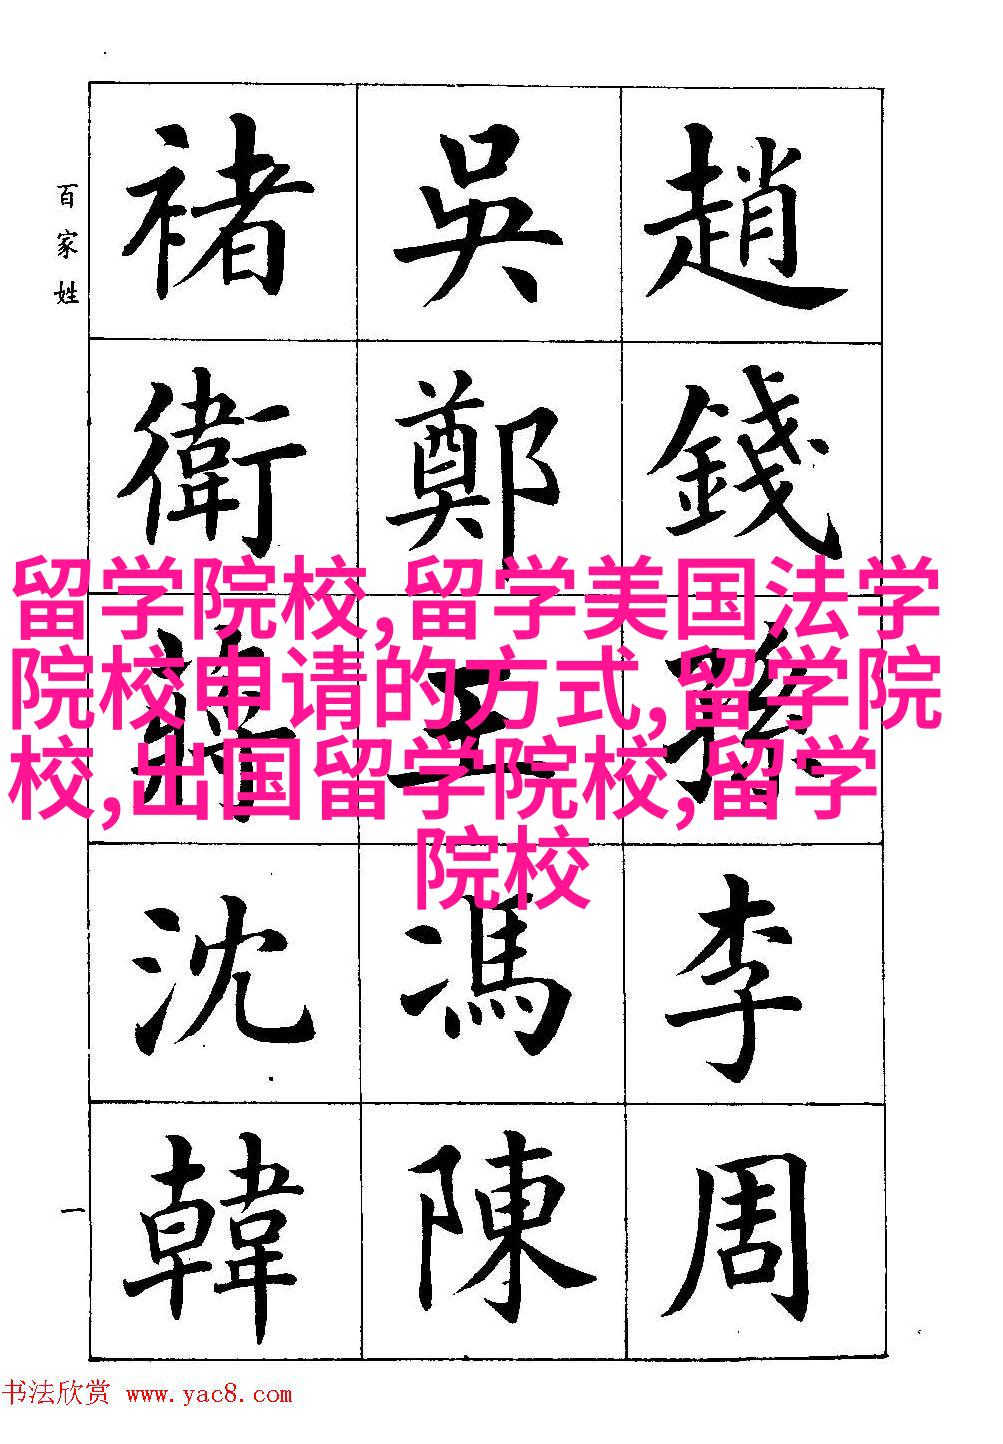 百家姓
趙錢孫李周
吳鄭王馮陳
褚衛蔣沈韓
一
留学院校,留学美国法学
院校申请的方式,留学院
校,出国留学院校,留学
院校
书法欣赏 www.yac8.com